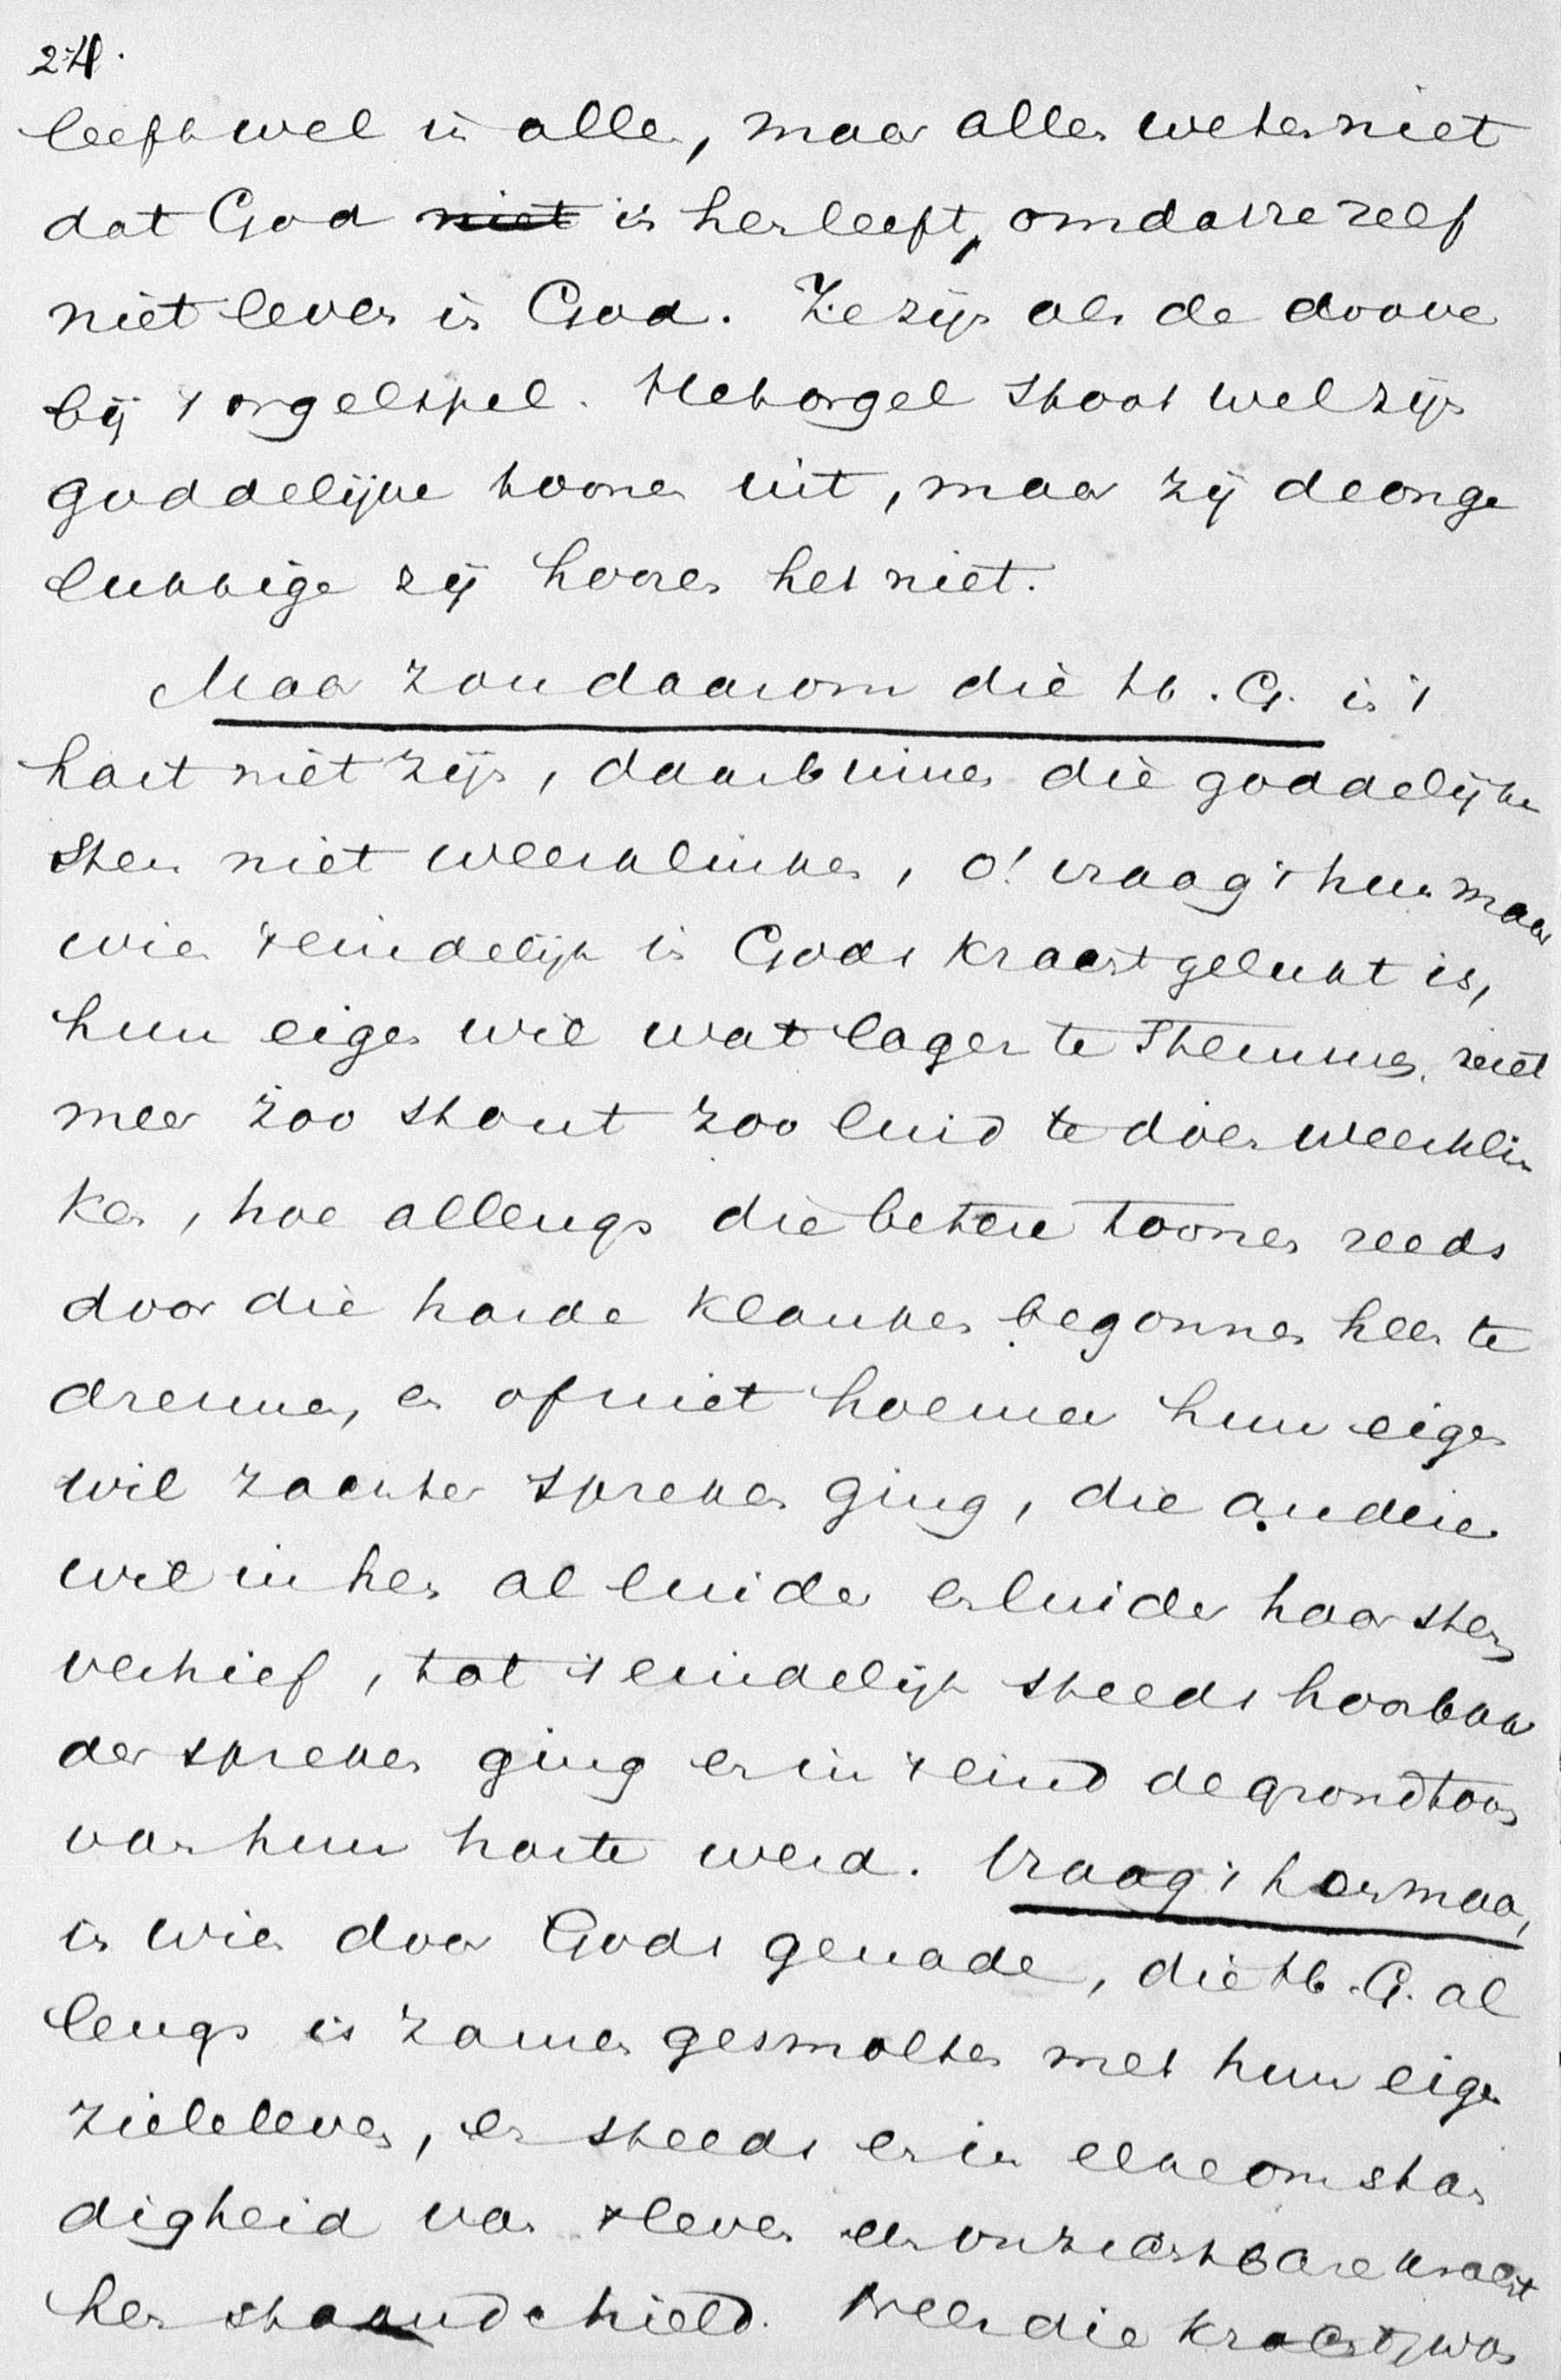 24.
leeft wel in allen, maar allen weten niet
dat God niet in hen leeft, omdat ze zelf
niet leven in God. Ze zijn als de dooven
bij 't orgelspel. Het orgel stoot wel zijn
goddelijke toonen uit, maar zij de onge
lukkige zij hooren het niet.
Maar zou daarom die H. G. in 't
hart niet zijn, daarbinnen die goddelijke
stem niet weerklinken, o! vraag 't hun maar
wien 't eindelijk in Gods kracht gelukt is,
hun eigen wil wat lager te stemmen, niet
meer zoo stout zoo luid te doen weerklin
ken, hoe allengs die betere toonen reeds
door die harde klanken begonnen heen te
dreunen, en of niet hoemeer hun eigen
wil zachter spreken ging, die andere
wil in hen al luider en luider haar stem
verhief, tot 't eindelijk steeds hoorbaar
der spreken ging en in 't eind de grondtoon
van hun harte werd. Vraag 't hen maar,
in wien door Gods genade, die H. G. al
lengs is zamen gesmolten met hun eigen
zieleleven, en steeds en in elke omstan
digheid van 't leven een onzichtbare kracht
hen staande hield. Neen die kracht, was